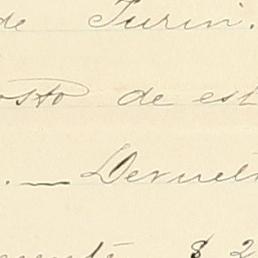 de Turin.
osto de est
. — Devuelt
mente $ 2